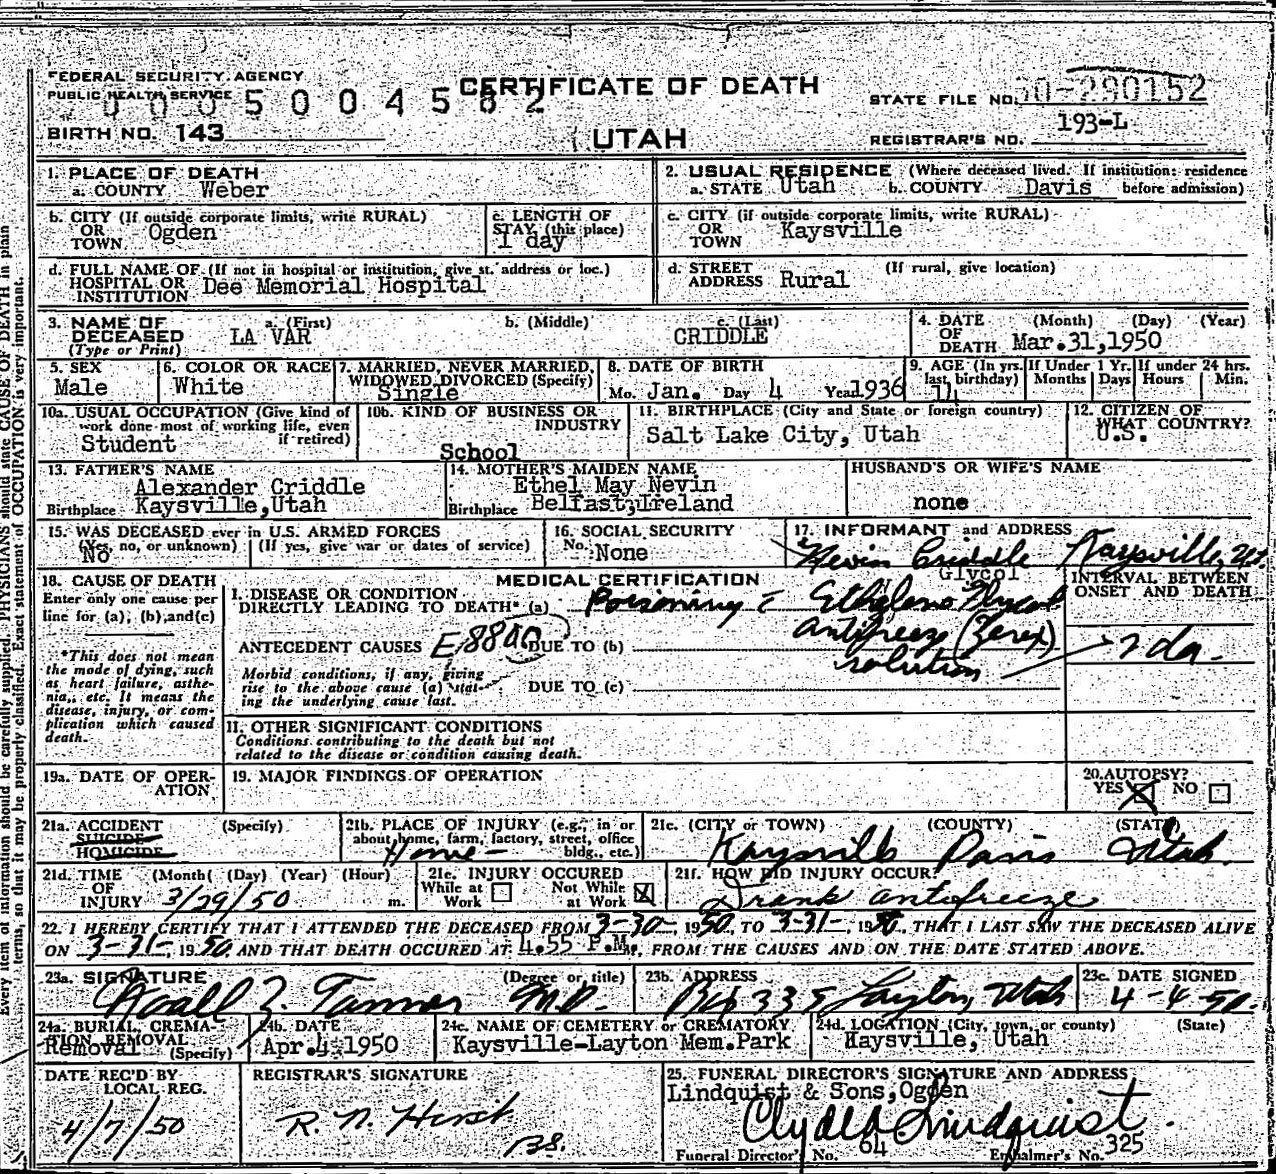 FEDERAL SECURITY AGENCY
PUBLIC HEALTH SERVICE
CERTIFICATE OF DEATH
STATE FILE NO. 50-290152
BIRTH NO. 143
UTAH
193-L
REGISTRAR'S NO.
1. PLACE OF DEATH
a. COUNTY Weber
2. USUAL RESIDENCE (Where deceased lived. If institution: residence before admission)
a. STATE Utah b. COUNTY Davis
b. CITY (If outside corporate limits, write RURAL)
OR TOWN Ogden
c. LENGTH OF STAY (this place)
1 day
c. CITY (if outside corporate limits, write RURAL)
OR TOWN Kaysville
d. FULL NAME OF (If not in hospital or institution, give st. address or loc.)
HOSPITAL OR INSTITUTION Dee Memorial Hospital
d. STREET ADDRESS Rural (If rural, give location)
3. NAME OF DECEASED (Type or Print)
a. (First) b. (Middle) c. (Last)
LA VAR CRIDDLE
4. DATE OF DEATH (Month) (Day) (Year)
Mar.31,1950
5. SEX
Male
6. COLOR OR RACE
White
7. MARRIED, NEVER MARRIED, WIDOWED, DIVORCED (Specify)
Single
8. DATE OF BIRTH
Mo. Jan. Day 4 Year 1936
9. AGE (In yrs. last birthday)
14
If Under 1 Yr. Months Days
If under 24 hrs. Hours Min.
10a. USUAL OCCUPATION (Give kind of work done most of working life, even if retired)
Student
10b. KIND OF BUSINESS OR INDUSTRY
School
11. BIRTHPLACE (City and State or foreign country)
Salt Lake City, Utah
12. CITIZEN OF WHAT COUNTRY?
U.S.
13. FATHER'S NAME
Alexander Criddle
Birthplace Kaysville,Utah
14. MOTHER'S MAIDEN NAME
Ethel May Nevin
Birthplace Belfast,Ireland
HUSBAND'S OR WIFE'S NAME
none
15. WAS DECEASED ever in U.S. ARMED FORCES
(Yes, no, or unknown) (If yes, give war or dates of service)
No
16. SOCIAL SECURITY
No. None
17. INFORMANT and ADDRESS
Nevin Criddle Kaysville, Ut.
18. CAUSE OF DEATH
Enter only one cause per line for (a), (b), and (c)
*This does not mean the mode of dying, such as heart failure, asthenia, etc. It means the disease, injury, or complication which caused death.
MEDICAL CERTIFICATION
INTERVAL BETWEEN ONSET AND DEATH
I. DISEASE OR CONDITION DIRECTLY LEADING TO DEATH* (a) Poisoning c Ethylene Glycol
Glycol
ANTECEDENT CAUSES E8800 DUE TO (b) antifreeze (Zerex)
solution 2 da.
Morbid conditions, if any, giving rise to the above cause (a) stating the underlying cause last.
DUE TO (c)
II. OTHER SIGNIFICANT CONDITIONS
Conditions contributing to the death but not related to the disease or condition causing death.
19a. DATE OF OPERATION
19. MAJOR FINDINGS OF OPERATION
20. AUTOPSY?
YES NO
21a. ACCIDENT (Specify)
SUICIDE
HOMICIDE
21b. PLACE OF INJURY (e.g., in or about home, farm, factory, street, office bldg., etc.)
Home
21c. (CITY or TOWN) (COUNTY) (STATE)
Kaysville Davis Utah
21d. TIME OF INJURY (Month) (Day) (Year) (Hour)
3/29/50 m.
21e. INJURY OCCURED
While at Work Not While at Work
21f. HOW DID INJURY OCCUR?
Drank antifreeze
22. I HEREBY CERTIFY THAT I ATTENDED THE DECEASED FROM 3-30-, 1950, TO 3-31-, 1950, THAT I LAST SAW THE DECEASED ALIVE
ON 3-31-, 1950, AND THAT DEATH OCCURED AT 4.55 P.M, FROM THE CAUSES AND ON THE DATE STATED ABOVE.
23a. SIGNATURE (Degree or title)
Noall Z. Tanner M.D.
23b. ADDRESS
Box 335 Layton, Utah
23c. DATE SIGNED
4-4-50
24a. BURIAL, CREMATION, REMOVAL (Specify)
Removal
24b. DATE
Apr.4,1950
24c. NAME OF CEMETERY or CREMATORY
Kaysville-Layton Mem.Park
24d. LOCATION (City, town, or county) (State)
Kaysville, Utah
DATE REC'D BY LOCAL REG.
4/7/50
REGISTRAR'S SIGNATURE
R. N. Hirst
25. FUNERAL DIRECTOR'S SIGNATURE AND ADDRESS
Lindquist & Sons,Ogden
Clyde Lindquist
Funeral Director's No. 64 Embalmer's No. 325